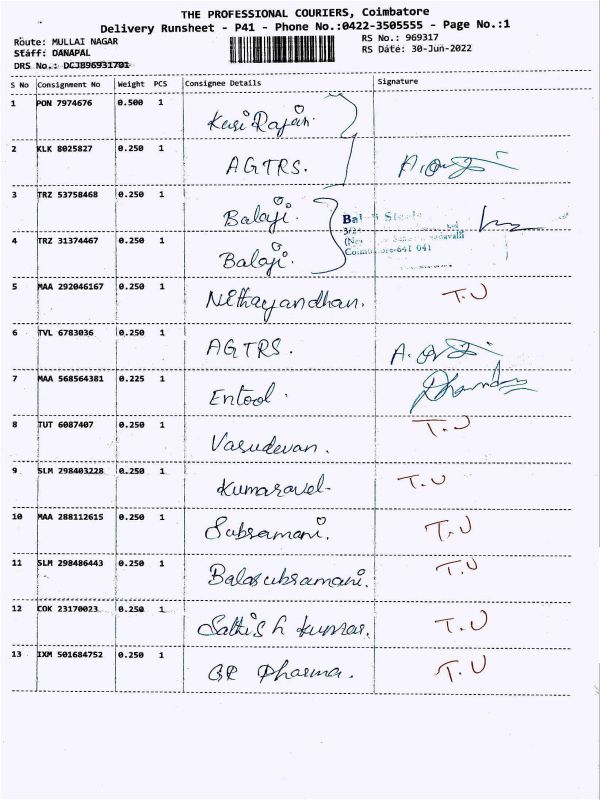 THE PROFESSIONAL COURIERS, Coimbatore
Delivery Runsheet - P41 - Phone No.:0422-3505555 - Page No.:1
Route: MULLAI NAGAR RS No.: 969317
Staff: DANAPAL RS Date: 30-Jun-2022
DRS No.: DCJ896931701
S No Consignment No Weight PCS Consignee Details Signature
1 PON 7974676 0.500 1 Kasi Rajan
2 KLK 8025827 0.250 1 AGTRS.
3 TRZ 53758468 0.250 1 Balaji.
Steels
4 TRZ 31374467 0.250 1 Balaji.
641 041
5 MAA 292046167 0.250 1 Nithayanandhan. T.U
6 TVL 6783036 0.250 1 AGTRS.
7 MAA 568564381 0.225 1 Entool.
8 TUT 6087407 0.250 1 Vasudevan. T.U
9 SLM 298403228 0.250 1 Kumaravel. T.U
10 MAA 288112615 0.250 1 Subramani. T.U
11 SLM 298486443 0.250 1 Balasubramani. T.U
12 COK 23170023 0.250 1 Sathish Kumar. T.U
13 IXM 501684752 0.250 1 GR Pharma. T.U